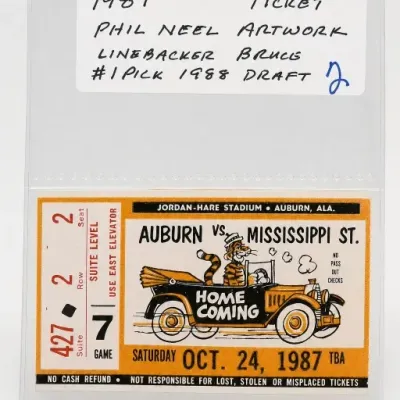 1987 TICKET
PHIL NEEL ARTWORK
LINEBACKER BRUCE
#1 PICK 1988 DRAFT 2
JORDAN-HARE STADIUM • AUBURN, ALA.
AUBURN VS. MISSISSIPPI ST.
NO
PASS
OUT
CHECKS
HOME
COMING
SATURDAY OCT. 24, 1987 TBA
427 Suite
2 Row
2 Seat
SUITE LEVEL
USE EAST ELEVATOR
7
GAME
NO CASH REFUND • NOT RESPONSIBLE FOR LOST, STOLEN OR MISPLACED TICKETS